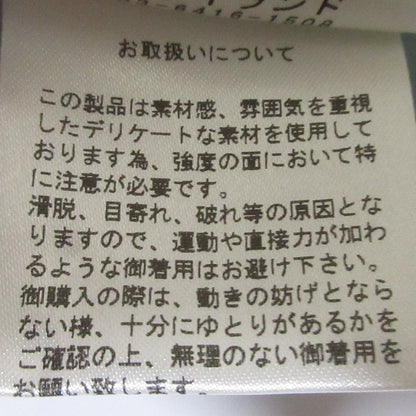 お取扱いについて
この製品は素材感、雰囲気を重視
したデリケートな素材を使用して
おります為、強度の面において特
に注意が必要です。
滑脱、目寄れ、破れ等の原因とな
りますので、運動や直接力が加わ
るような御着用はお避け下さい。
御購入の際は、動きの妨げとなら
ない様、十分にゆとりがあるかを
ご確認の上、無理のない御着用を
お願い致します。